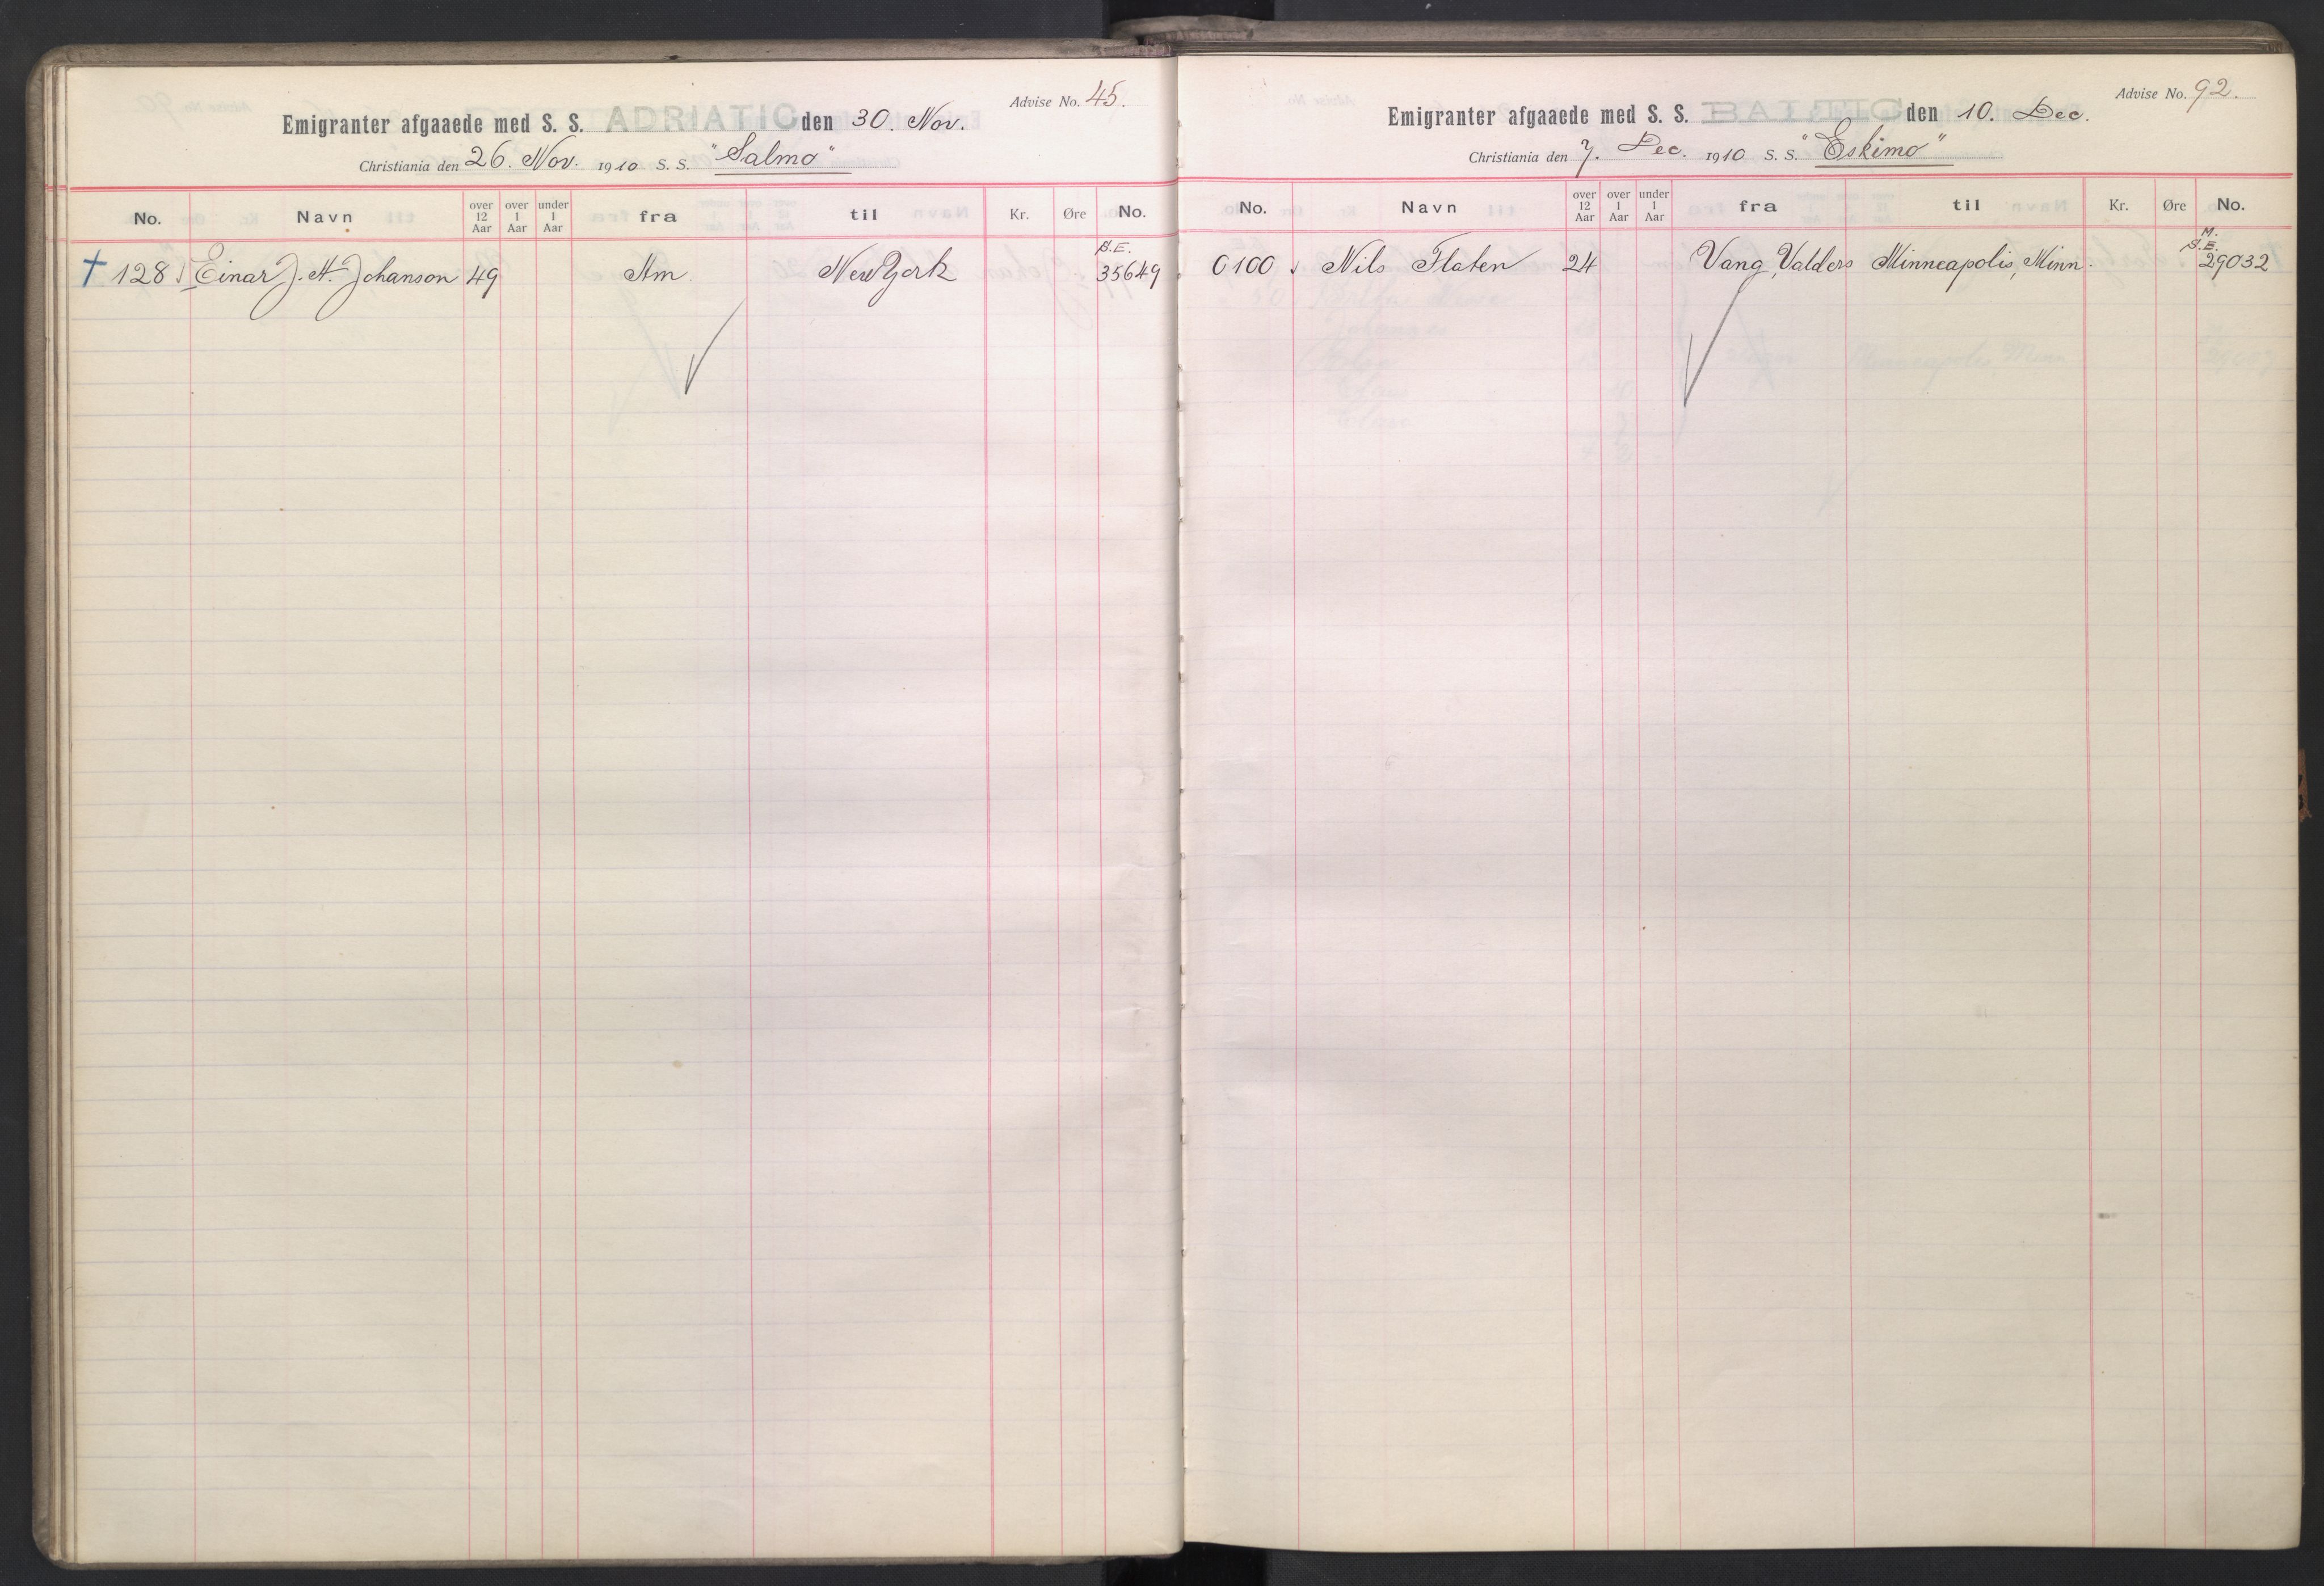 Advise No. 45.
Emigranter afgaaede med S. S. ADRIATIC den 30. Nov.
Christiania den 26. Nov. 1910 S. S. "Salmo"
No. Navn over 12 Aar over 1 Aar under 1 Aar fra til Kr. Øre No.
S.E.
+ 128 Einar J. A. Johanson 49 Am. New York 35649
Advise No. 92.
Emigranter afgaaede med S. S. BALTIC den 10. Dec.
Christiania den 7. Dec. 1910 S. S. "Eskimo"
No. Navn over 12 Aar over 1 Aar under 1 Aar fra til Kr. Øre No.
M.
S.E.
0100 Nils Flaten 24 Vang, Valders Minneapolis, Minn. 29032